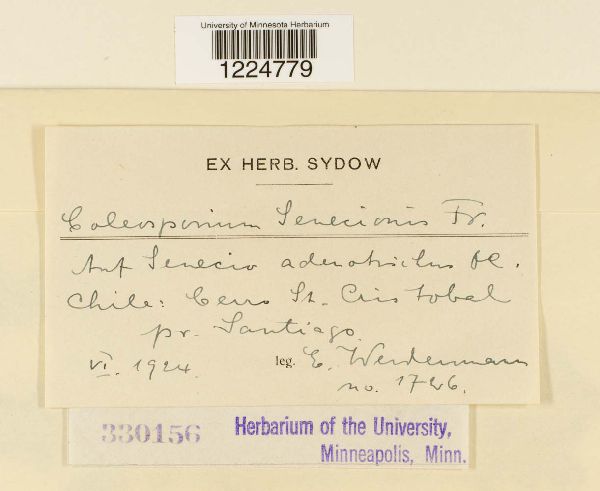 University of Minnesota Herbarium
1224779
EX HERB. SYDOW
Coleosporium Senecionis Fr.
Auf Senecio adenotrichus DC.
Chile: Cerro St. Cristobal
pr. Santiago
VI. 1924. leg. E. Werdermann
no. 1746.
330156 Herbarium of the University,
Minneapolis, Minn.